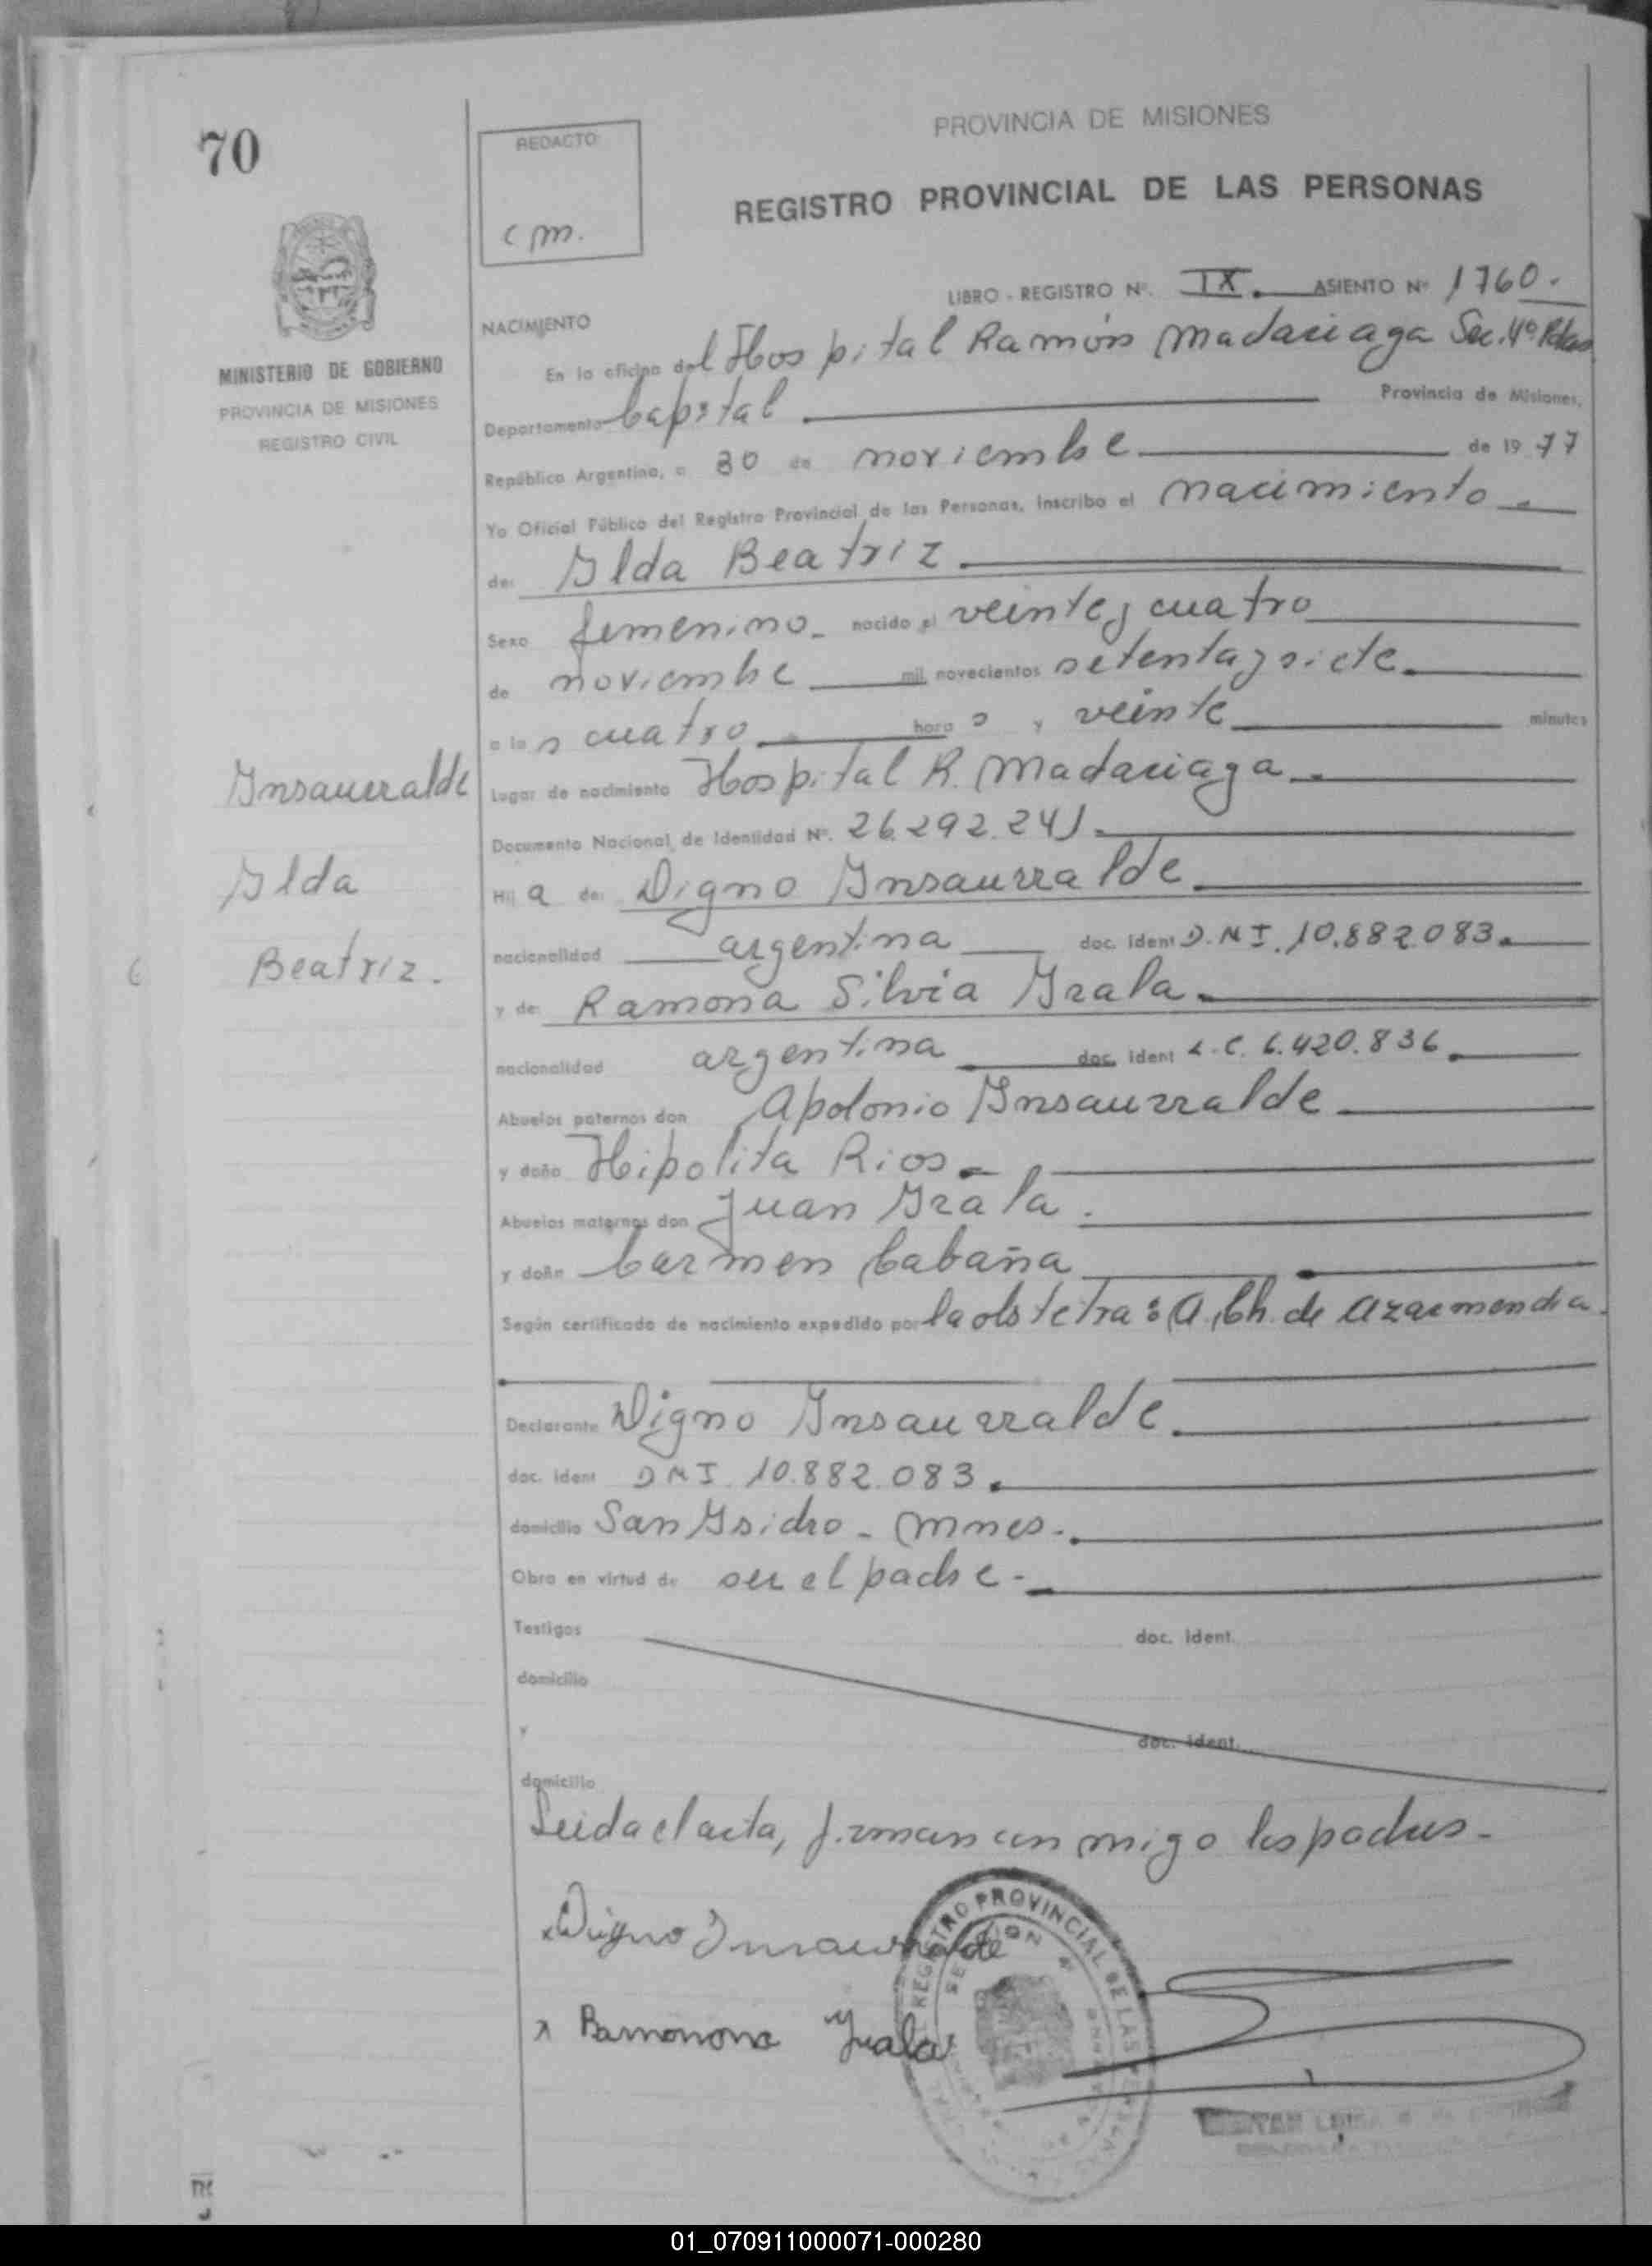 70
REDACTO
cm.
PROVINCIA DE MISIONES
REGISTRO PROVINCIAL DE LAS PERSONAS
MINISTERIO DE GOBIERNO
PROVINCIA DE MISIONES
REGISTRO CIVIL
LIBRO - REGISTRO Nº. IX. ASIENTO Nº 1760.
NACIMIENTO
En la oficina del Hospital Ramón Madariaga Sec. 4º Pdas
Departamento Capital Provincia de Misiones,
República Argentina, a 30 de noviembre de 1977
Yo Oficial Público del Registro Provincial de las Personas, inscribo el nacimiento
de: Ilda Beatriz
Sexo femenino nacido el veinte y cuatro
de noviembre mil novecientos setenta y siete
a las cuatro horas y veinte minutos
Lugar de nacimiento Hospital R. Madariaga
Documento Nacional de Identidad Nº. 26.292.241
Insaurralde
Ilda
Beatriz.
Hija de: Digno Insaurralde
nacionalidad argentina doc. ident D.N.I. 10.882.083
y de: Ramona Silvia Irala
nacionalidad argentina doc. ident L.C. 6.420.836
Abuelos paternos don Apolonio Insaurralde
y doña Hipolita Rios
Abuelos maternos don Juan Irala.
y doña Carmen Cabaña
Según certificado de nacimiento expedido por la obstetra: A. Ch. de Azarmendia.
Declarante Digno Insaurralde
doc. ident DNI 10.882.083.
domicilio San Isidro - Mnes.
Obra en virtud de ser el padre.
Testigos doc. ident.
domicilio
y doc. ident.
domicilio
Leida el acta, firman conmigo los padres.
x Digno Insaurralde
x Ramonona Irala
REGISTRO PROVINCIAL DE LAS
SECCION 4
01_070911000071-000280